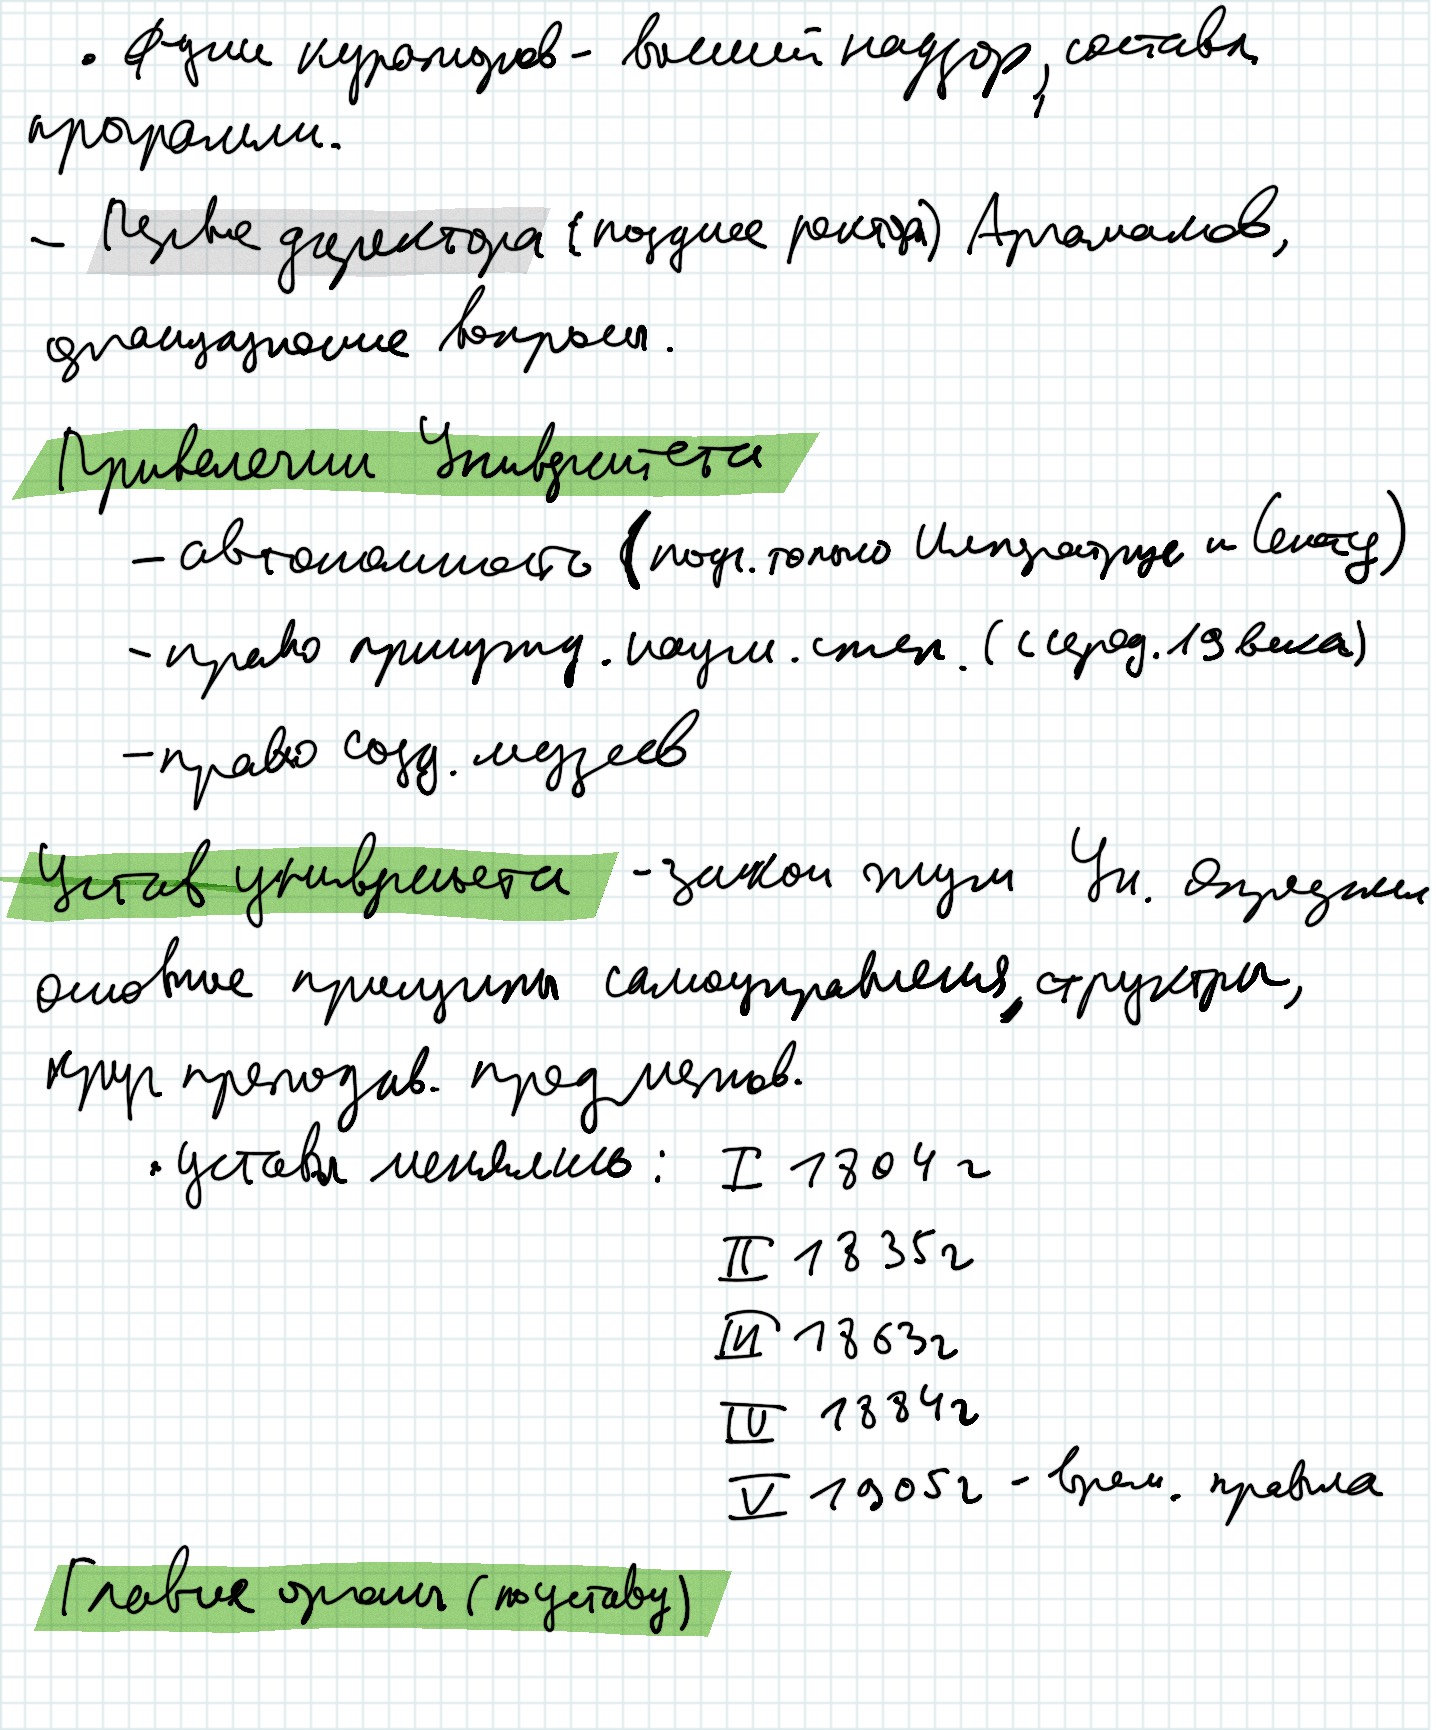 • Ф-ции кураторов - высший надзор, составл
программы.
- Первые директора (позднее ректора) Аргамаков,
организационные вопросы.
Привелегии Университета
- автономность (подч. только Императрице и Сенату)
- право присужд. научн. степ. (с серед. 19 века)
- право созд. музеев
Устав университета - закон жизни Ун. Определял
основные принципы самоуправления, структры,
круг преподав. предметов.
• уставы менялись: I 1804 г
II 1835 г
III 1863 г
IV 1884 г
V 1905 г - врем. правила
Главные органы (по уставу)